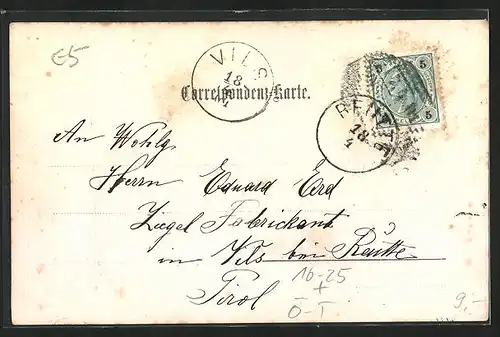 E5
VILS
18
4
Correspondenz-Karte.
5
5
REUTTE
18
4
An Wohlg.
Herrn Eduard Erd
Ziegel Fabrickant
in Vils bei Reutte
Tirol
10-25
+
Ö-T
9,-